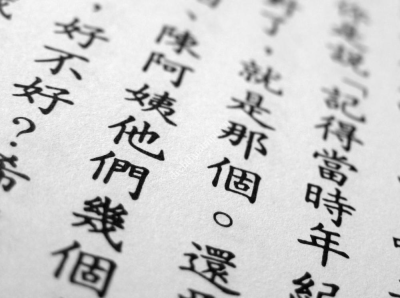 你是說「記得當時年紀
對了，就是那個。還
、陳阿姨他們幾個
，好不好？希